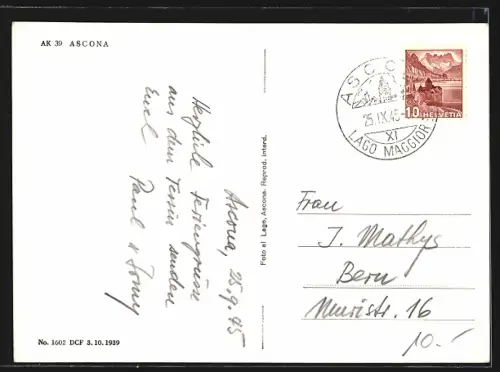 AK 39 ASCONA
Ascona, 25.9.45
Herzliche Feriengrüsse
aus dem Tessin senden
Euch
Paul u
No. 1602 DCF 3.10.1939
Foto al Lago, Ascona. Reprod. interd.
ASCO
25.IX.45-
XI
LAGO MAGGIOR
10 HELVETIA
Frau
J. Mathys
Bern
Muristr. 16
10.-